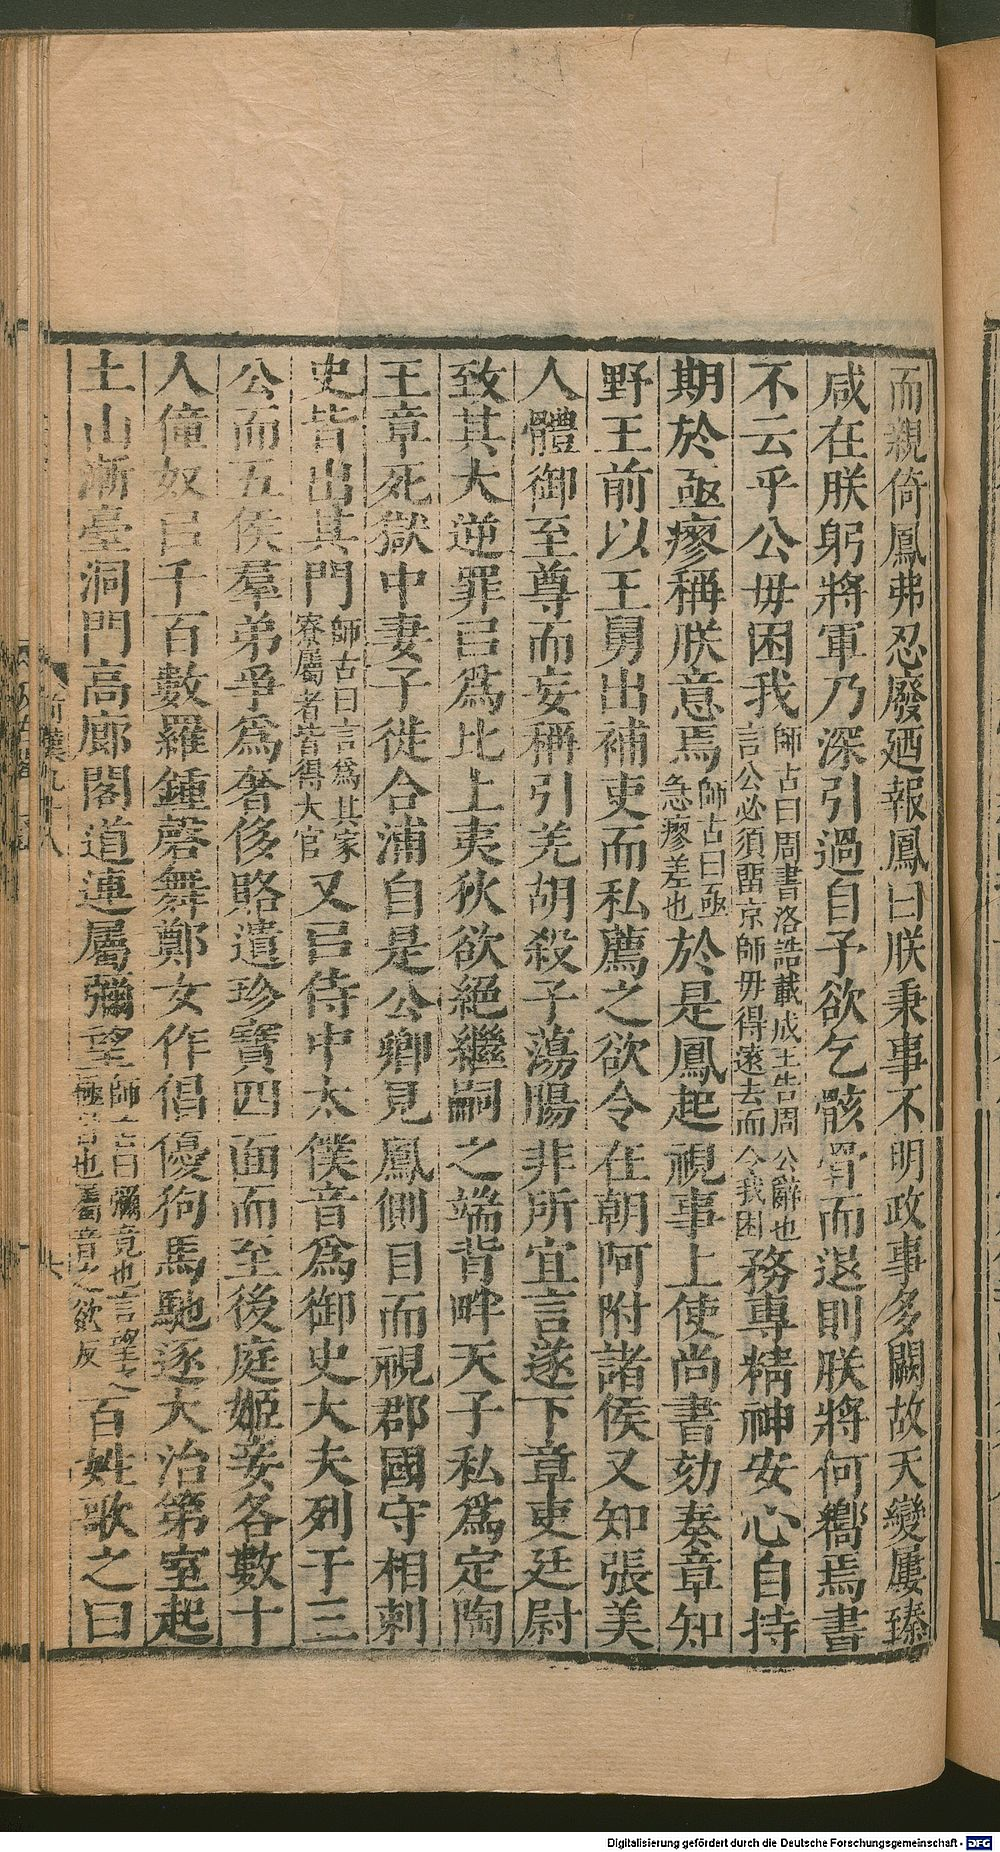 而親倚鳳弗忍廢廼報鳳曰朕秉事不明政事多闕故天變屢臻
咸在朕躬將軍乃深引過自予欲乞骸骨而退則朕將何嚮焉書
不云乎公毋困我師古曰周書洛誥載成王告周公辭也言公必須畱京師毋得遠去而令我困務專精神安心自持
期於亟瘳稱朕意焉師古曰亟急瘳差也於是鳳起視事上使尚書劾奏章知
野王前以王舅出補吏而私薦之欲令在朝阿附諸侯又知張美
人體御至尊而妄稱引羌胡殺子蕩腸非所宜言遂下章吏廷尉
致其大逆罪㠯爲比上夷狄欲絕繼嗣之端背畔天子私爲定陶
王章死獄中妻子徙合浦自是公卿見鳳側目而視郡國守相刺
史皆出其門師古曰言爲其家寮屬者皆得大官又㠯侍中太僕音爲御史大夫列于三
公而五侯羣弟爭爲奢侈賂遺珍寶四面而至後庭姬妾各數十
人僮奴㠯千百數羅鍾磬舞鄭女作倡優狗馬馳逐大治第室起
土山漸臺洞門高廊閣道連屬彌望師古曰彌竟也言望之極目也屬音之欲反百姓歌之曰
前漢九十八
Digitalisierung gefördert durch die Deutsche Forschungsgemeinschaft - DFG